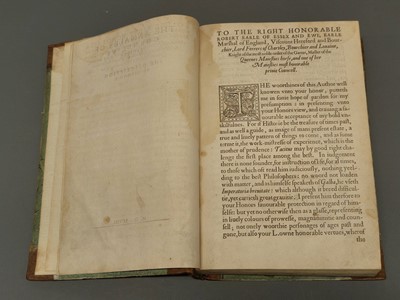 TO THE RIGHT HONORABLE
ROBERT EARLE OF ESSEX AND EWE, EARLE
Marshal of England, Viscount Hereford and Bour-
chier, Lord Ferrers of Chartley, Bourchier and Louaine,
Knight of the most noble order of the Garter, Master of the
Queenes Maiesties horse, and one of her
Maiesties most honorable
priuie Counsell.
THE worthinesse of this Author well
knowen vnto your honor, putteth
me in some hope of pardon for my
presumption: in presenting vnto
your Honors view, and crauing a fa-
uorable acceptance of my bold vn-
skilfulnes. For if Historie be the treasure of times past,
and as well a guide, as image of mans present estate, a
true and liuely pattern of things to come, and as some
terme it, the work-mistresse of experience, which is the
mother of prudence: Tacitus may by good right cha-
lenge the first place among the best. In iudgement
there is none sounder, for instruction of life, for al times,
to those which oft read him iudiciously, nothing yeel-
ding to the best Philosophers: no woord not loaden
with matter, and as himselfe speaketh of Galba, he vseth
Imperatoria breuitate: which although it breed difficul-
tie, yet carrieth great grauitie. A present him therfore to
your Honors fauourable protection in regard of him-
selfe: but yet no other wise then as a glasse, representing
in liuely colours of prowesse, magnanimitie and coun-
sell; not onely woorthie personages of ages past and
gone, but also your L. owne honorable vertues, wherof
the